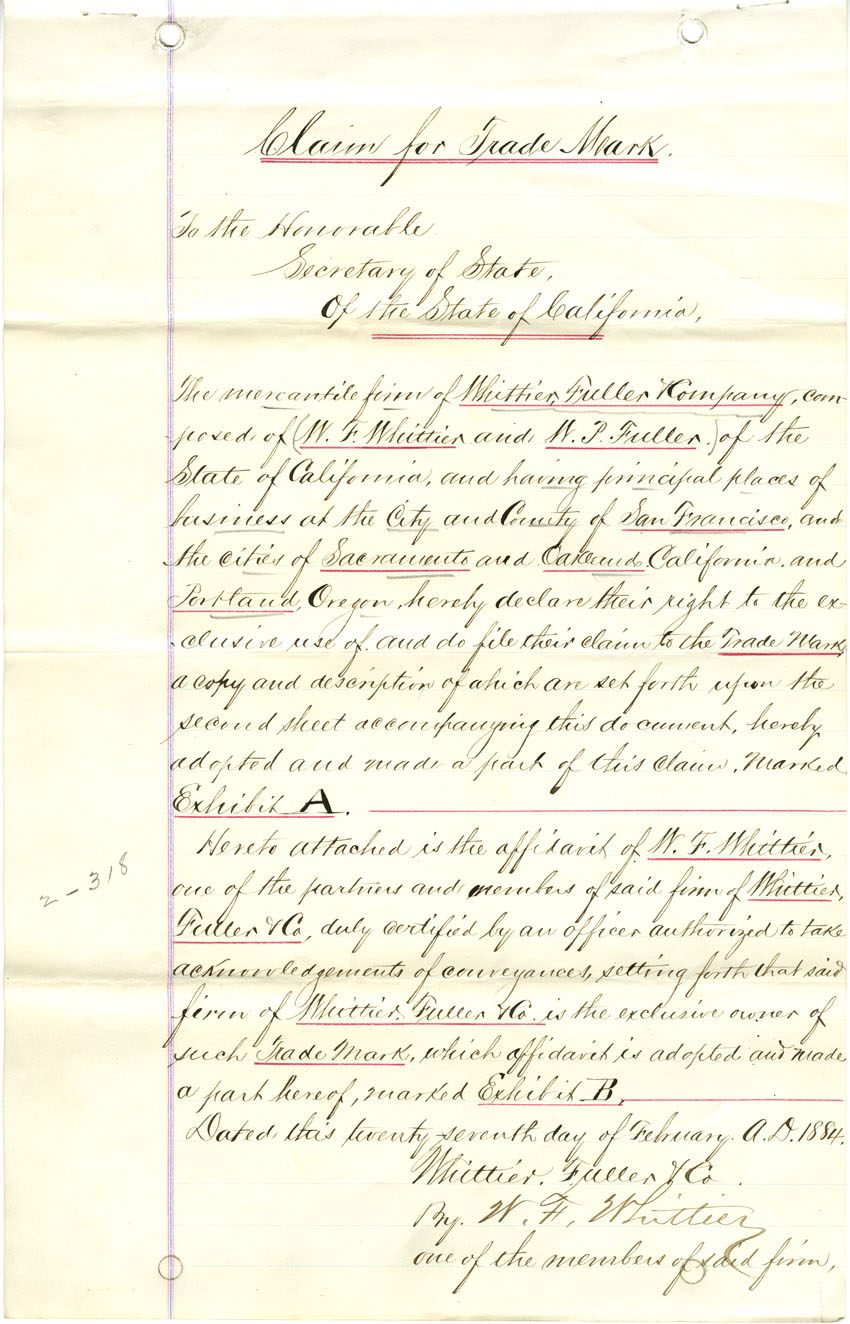 Claim for Trade Mark.
To the Honorable
Secretary of State,
Of the State of California,
The mercantile firm of Whittier, Fuller & Company, com-
-posed of (W. F. Whittier and W. P. Fuller.) of the
State of California, and having principal places of
business at the City and County of San Francisco, and
the cities of Sacramento and Oakland, California, and
Portland, Oregon, hereby declare their right to the ex-
-clusive use of, and do file their claim to the Trade Mark,
a copy and description of which are set forth upon the
second sheet accompanying this document, hereby
adopted and made a part of this claim, marked
Exhibit A.
Hereto attached is the affidavit of W. F. Whittier,
one of the partners and members of said firm of Whittier,
Fuller & Co, duly certified by an officer authorized to take
acknowledgements of conveyances, setting forth that said
firm of Whittier, Fuller & Co. is the exclusive owner of
such Trade Mark, which affidavit is adopted and made
a part hereof, marked Exhibit B,
Dated this twenty-seventh day of February. A.D. 1884.
Whittier, Fuller & Co.
By. W. F. Whittier
one of the members of said firm,
2-318